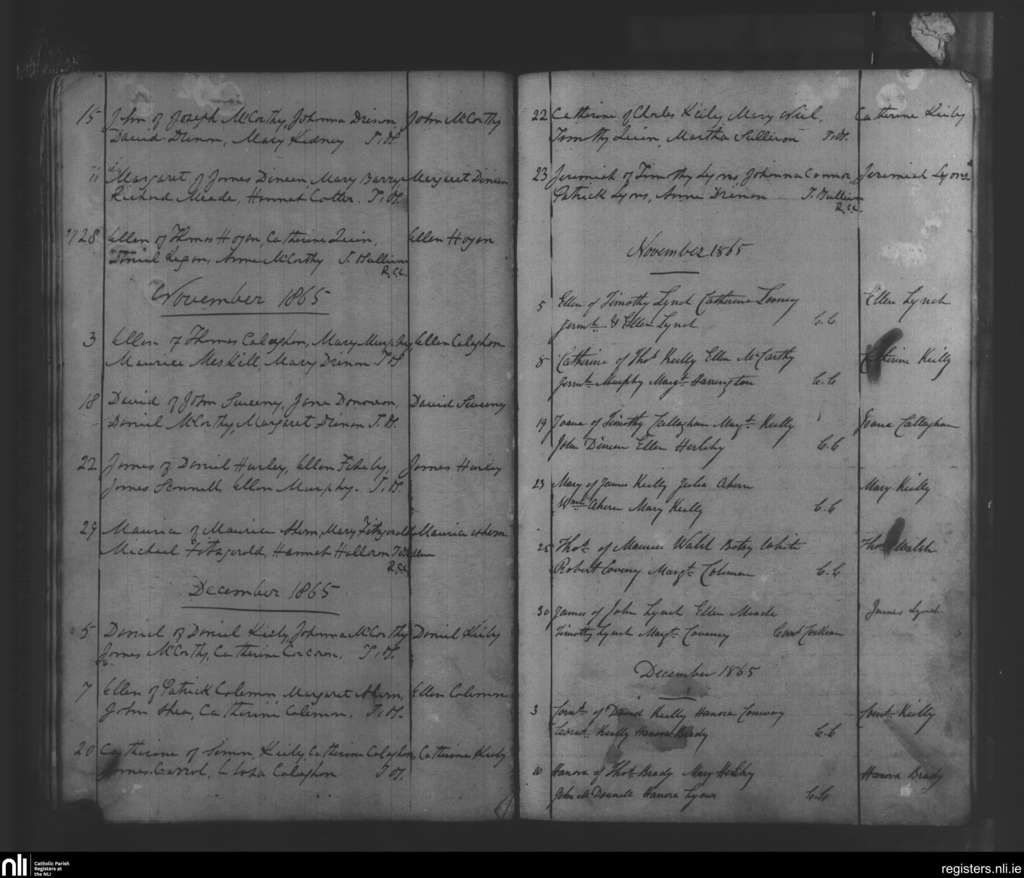 15 John of Joseph McCarthy, Johanna John McCarthy
David Dinon, Mary Kidney T. M.
11 Margaret of James Dineen, Mary Barry Margaret Dineen
Richard Meade, Hannah Cotter. T. M.
28 Ellen of Thomas Hogan, Catherine Quin, Ellen Hogan
Daniel Anne McCarthy T. Sullivan
R. CC.
November 1865
3 Ellen of Thomas Calaghan, Mary Murphy Ellen Calaghan
Maurice Meskill, Mary Dinon T. M.
18 David of John Sweeny, Jane Donovan, David Sweeny
Daniel McCarthy, Margaret Dinon T. M.
22 James of Daniel Hurley, Ellen James Hurley
James Ellen Murphy. T. M.
29 Maurice of Maurice Ahern, Mary Fitzgerald Maurice Ahern
Michael Fitzgerald, Hannah Halloran
R. CC.
December 1865
5 Daniel of Daniel Kiely, Johanna McCarthy Daniel Kiely
James McCarthy, Catherine Corcoran. T. M.
7 Ellen of Patrick Coleman Margaret Ahern, Ellen Coleman
John Shea, Catherine Coleman. T. M.
20 Catherine of Simon Kiely, Catherine Calaghan, Catherine Kiely
James Carrol, Calaghan T. M.
22 Catherine of Charles Kiely Mary Catherine Kiely
Timothy Quin, Martha Sullivan T. M.
23 Jeremiah of Timothy Lyons, Johanna Connor, Jeremiah Lyons
Patrick Lyons, Anne Dinon T. Sullivan
R. CC.
November 1865
5 Ellen of Timothy Lynch Catherine Looney Ellen Lynch
Jermh. & Ellen Lynch C. C
8 Catherine of Thos. Keilly Ellen McCarthy Catherine Keilly
Jermh. Murphy Margt. Harrington C. C
19 Joana of Timothy Callaghan Margt. Keilly Joana Callaghan
John Dineen Ellen Herlihy C. C
23 Mary of James Keilly Julia Ahern Mary Keilly
Wm. Ahern Mary Keilly C. C
25 Thos. of Maurice Walsh Betsy White Thos. Walsh
Robert Coveny Margt. Coleman C. C
30 James of John Lynch Ellen Meade James Lynch
Timothy Lynch Margt. Coveney
December 1865
3 Cornl. of David Keilly Hanora Conway Cornl. Keilly
Keilly Hanora Brady C. C
10 Hanora of Thos. Brady Mary Herlihy Hanora Brady
John McDonnell Hanora Lyons C. C
nli Catholic Parish
Registers at
the NLI
registers.nli.ie